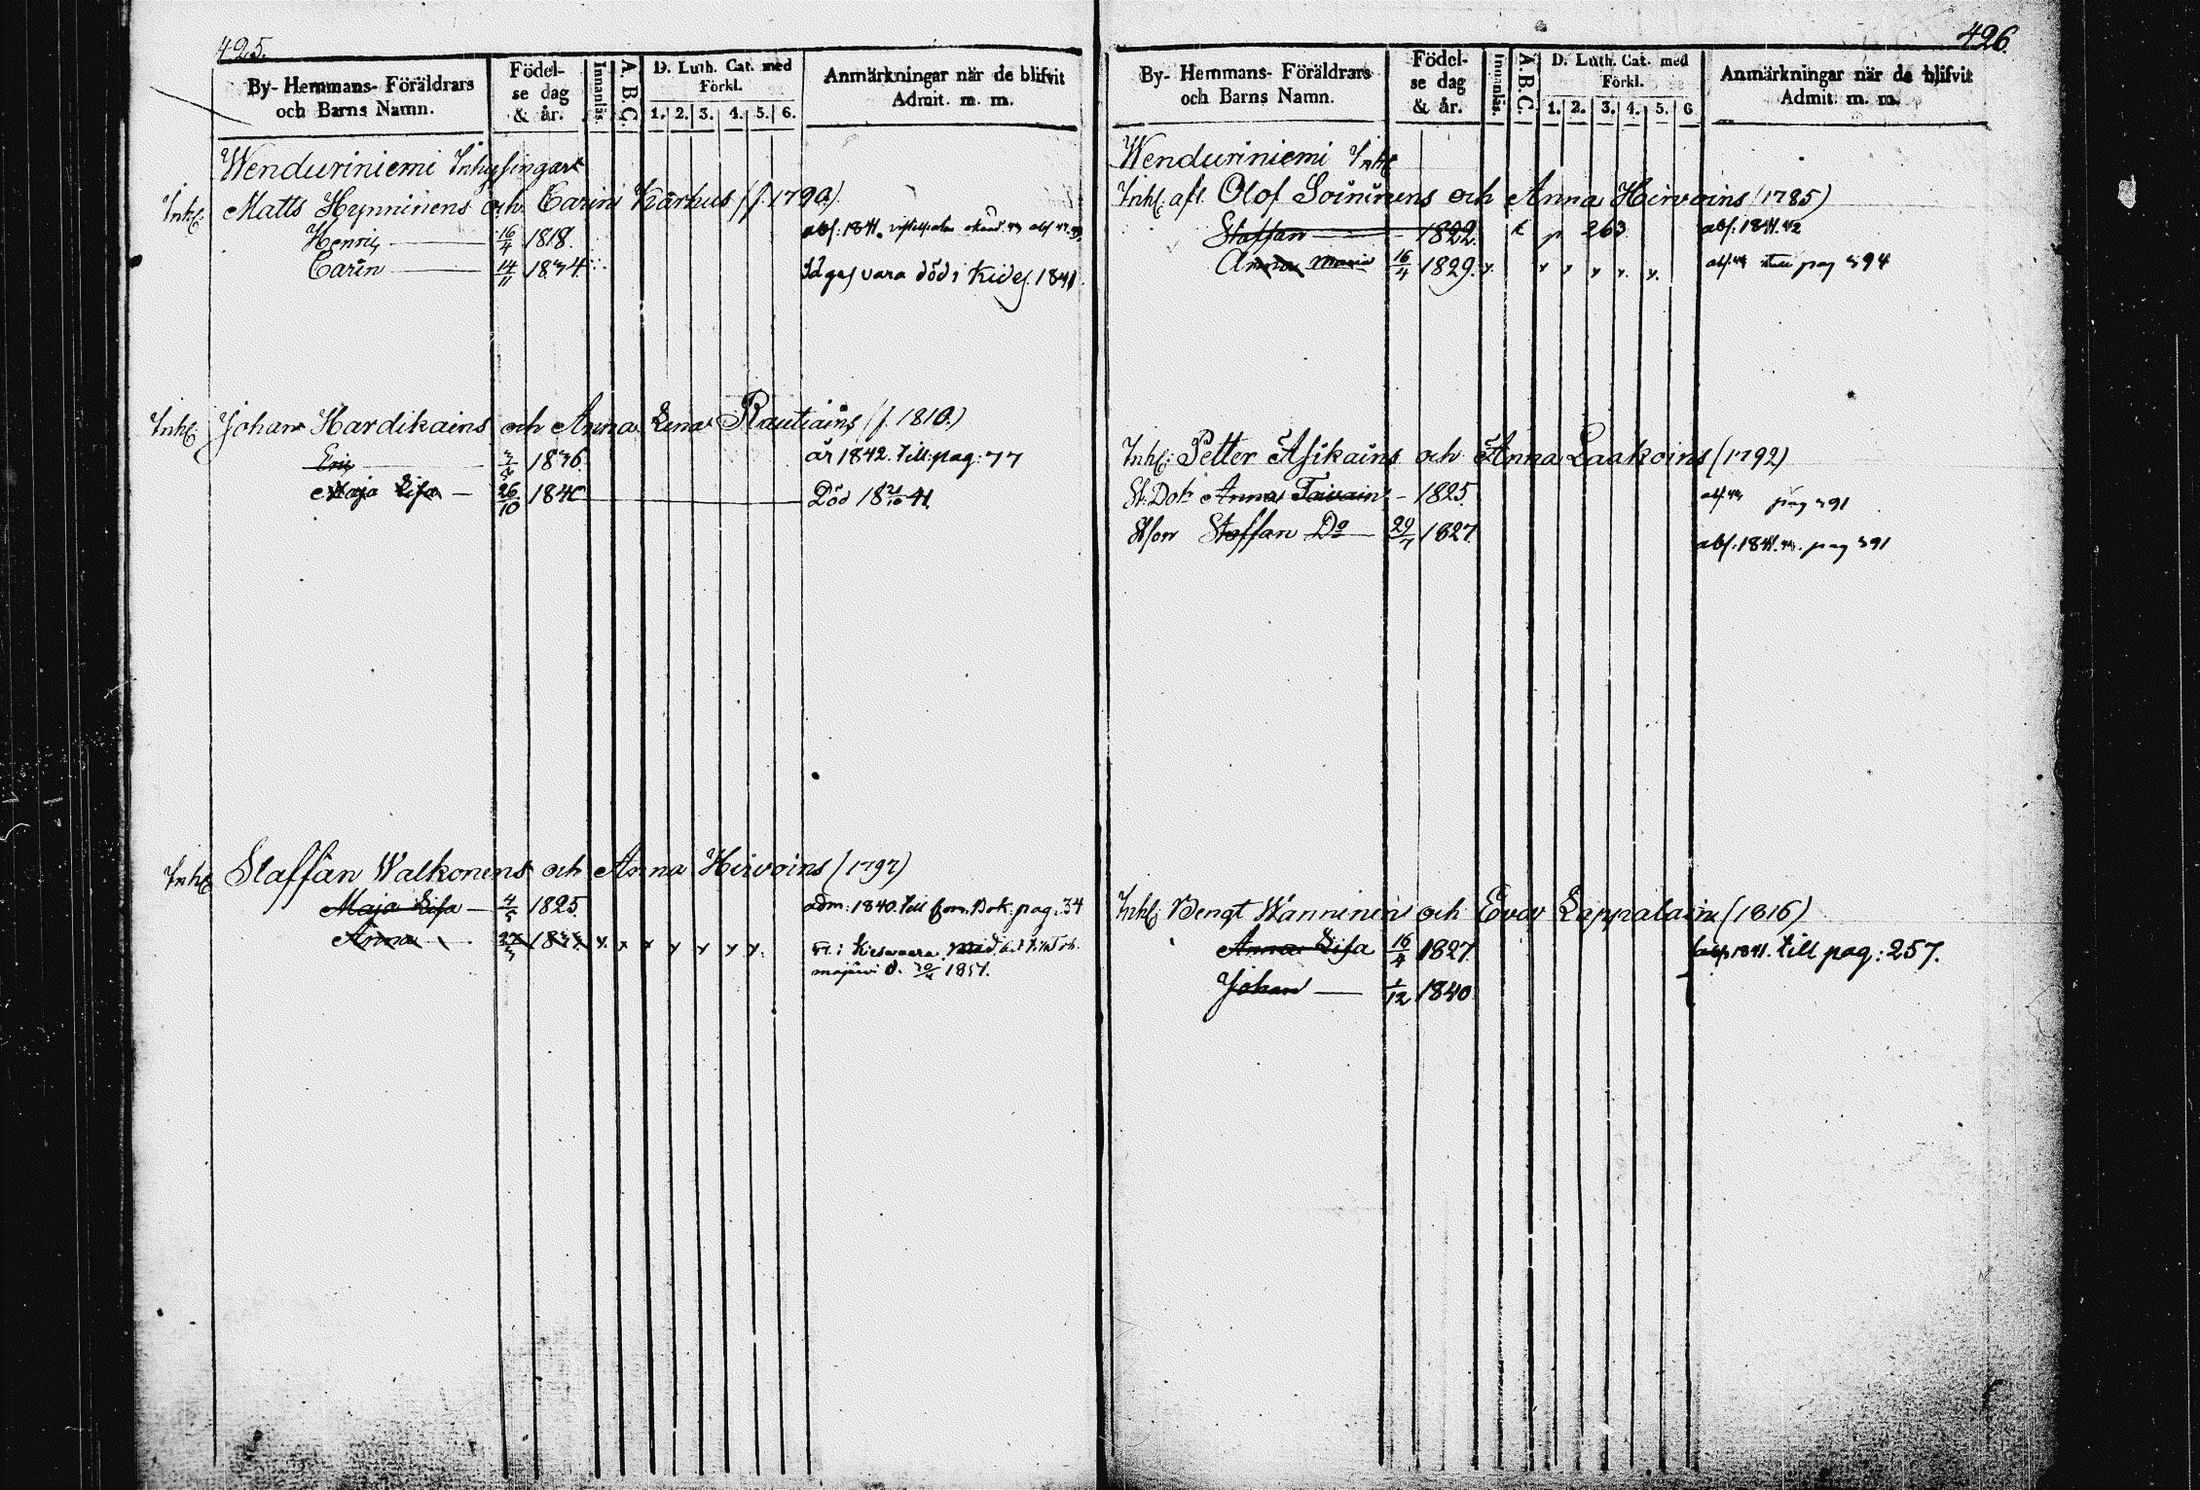 425.
By- Hemmans- Föräldrars och Barns Namn.
Födel-se dag & år.
Innanläs.
A. B. C.
D. Luth. Cat. med Förkl.
1. 2. 3. 4. 5. 6.
Anmärkningar när de blifvit Admit. m. m.
Wenduriniemi Inhysingar
Inh: Matts Hynninens och Carin Karhus (f. 1790)
Henric 16/4 1818. abs: 1841.
Carin 14/11 1834 vara död i Kides. 1841
Inh: Johan Hardikains och Anna Lena Rautiains (f. 1810.)
Eric 1836. år 1842. till pag: 77
Maja Lisa 26/10 1840 Död 18 41
Inh: Staffan Walkonens och Anna Hirvoins (1797)
Maja Lisa 4/5 1825 adm: 1840. till Bok. pag. 34
Anna x x x x x x x
1857.
426.
By- Hemmans- Föräldrars och Barns Namn.
Födel-se dag & år.
Innanläs.
A. B. C.
D. Luth. Cat. med Förkl.
1. 2. 3. 4. 5. 6
Anmärkningar när de blifvit Admit. m. m.
Wenduriniemi Inh:
Inh: afl. Olof Soininens och Anna Hirvoins (1785)
Staffan 1822. t p 263 abs: 1841. 42
Anna Maria 16/4 1829. x. x x x x x. pag 394
Inh: Petter Asikains och Anna Laakoins (1792)
St: Dot: Anna Taivain 1825. pag 391
St son Staffan Do 29/7 1827. abs: 1841. pag 391
Inh: Bengt Wanninen och Eva Lappalain (1816)
Anna Lisa 16/4 1827. abs 1841. till pag: 257.
Johan 1/12 1840